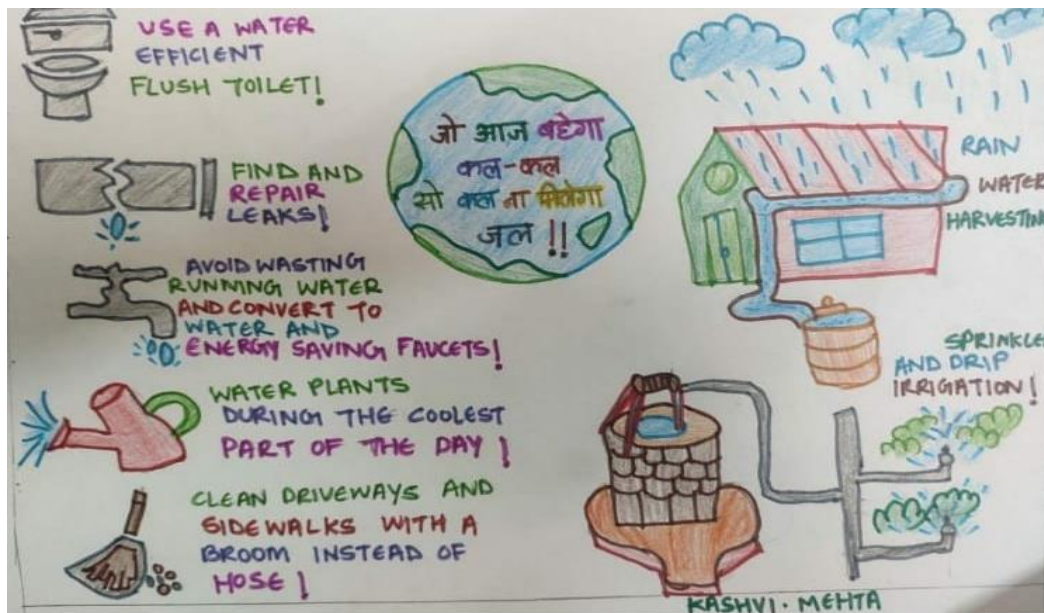 USE A WATER
EFFICIENT
FLUSH TOILET!
FIND AND
REPAIR
LEAKS!
AVOID WASTING
RUNNING WATER
AND CONVERT TO
WATER AND
ENERGY SAVING FAUCETS!
WATER PLANTS
DURING THE COOLEST
PART OF THE DAY!
CLEAN DRIVEWAYS AND
SIDEWALKS WITH A
BROOM INSTEAD OF
HOSE!
जो आज बहेगा
कल-कल
सो कल ना मिलेगा
जल !!
RAIN
WATER
HARVESTING
SPRINKLE
AND DRIP
IRRIGATION!
KASHVI. MEHTA